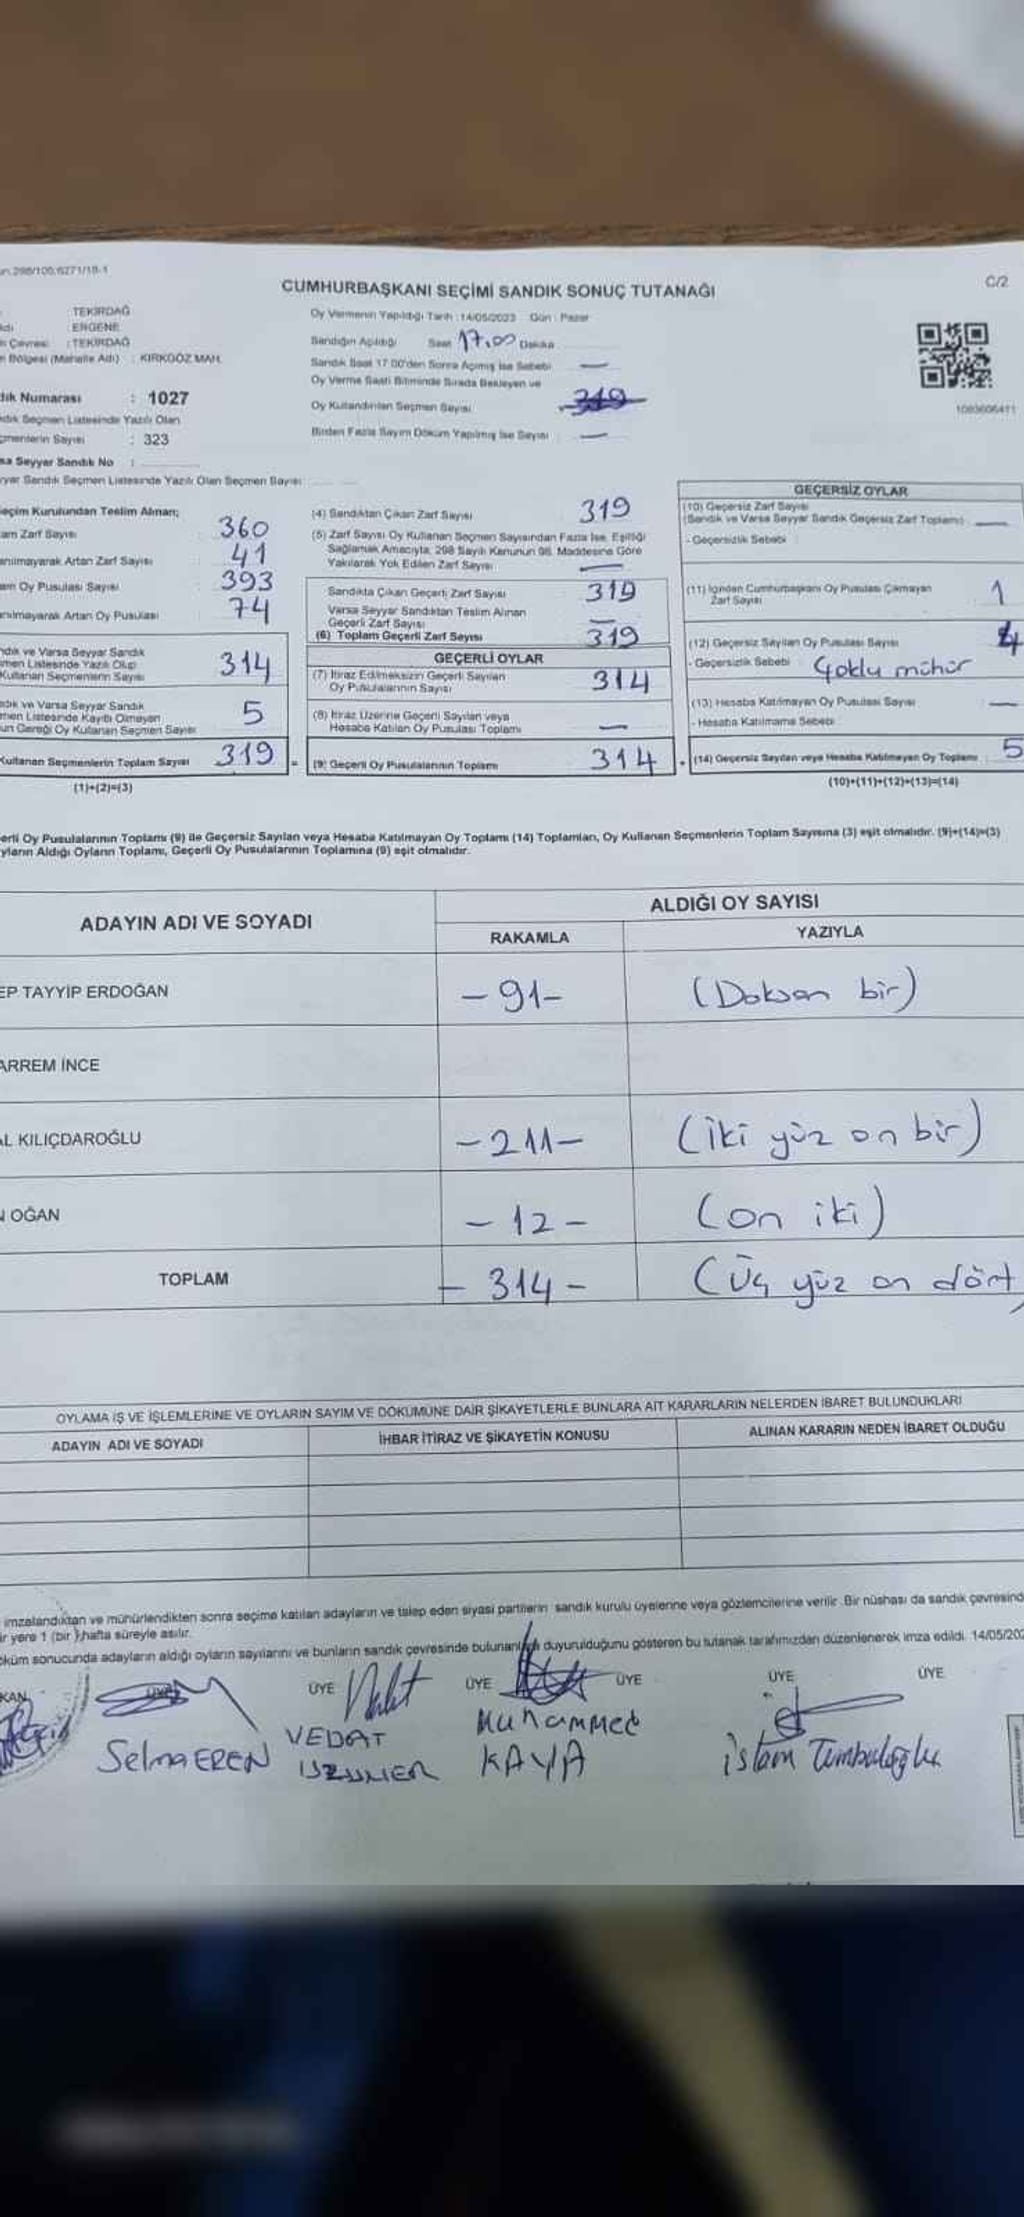 298/100;6271/18-1
C/2
CUMHURBAŞKANI SEÇİMİ SANDIK SONUÇ TUTANAĞI
: TEKİRDAĞ
: ERGENE
Çevresi : TEKİRDAĞ
Bölgesi (Mahalle Adı) : KIRKGÖZ MAH.
Numarası : 1027
Seçmen Listesinde Yazılı Olan
Sayısı : 323
Seyyar Sandık No :
Sandık Seçmen Listesinde Yazılı Olan Seçmen Sayısı
Oy Vermenin Yapıldığı Tarih : 14/05/2023 Gün : Pazar
Sandığın Açıldığı Saat 17.00 Dakika
Sandık Saat 17.00'den Sonra Açılmış İse Sebebi —
Oy Verme Saati Bitiminde Sırada Bekleyen ve
Oy Kullandırılan Seçmen Sayısı 319
Birden Fazla Sayım Döküm Yapılmış İse Sayısı —
Seçim Kurulundan Teslim Alınan;
Zarf Sayısı 360
Artan Zarf Sayısı 41
Oy Pusulası Sayısı 393
Artan Oy Pusulası 74
ve Varsa Seyyar Sandık
Listesinde Yazılı Olup
Kullanan Seçmenlerin Sayısı 314
ve Varsa Seyyar Sandık
Listesinde Kayıtlı Olmayan
Gereği Oy Kullanan Seçmen Sayısı 5
Kullanan Seçmenlerin Toplam Sayısı 319
(1)+(2)=(3)
(4) Sandıktan Çıkan Zarf Sayısı 319
(5) Zarf Sayısı Oy Kullanan Seçmen Sayısından Fazla İse, Eşitliği
Sağlamak Amacıyla; 298 Sayılı Kanunun 98. Maddesine Göre
Yakılarak Yok Edilen Zarf Sayısı —
Sandıkta Çıkan Geçerli Zarf Sayısı 319
Varsa Seyyar Sandıktan Teslim Alınan
Geçerli Zarf Sayısı —
(6) Toplam Geçerli Zarf Sayısı 319
GEÇERLİ OYLAR
(7) İtiraz Edilmeksizin Geçerli Sayılan
Oy Pusulalarının Sayısı 314
(8) İtiraz Üzerine Geçerli Sayılan veya
Hesaba Katılan Oy Pusulası Toplamı —
(9) Geçerli Oy Pusulalarının Toplamı 314
GEÇERSİZ OYLAR
(10) Geçersiz Zarf Sayısı
(Sandık ve Varsa Seyyar Sandık Geçersiz Zarf Toplamı) —
- Geçersizlik Sebebi
(11) İçinden Cumhurbaşkanı Oy Pusulası Çıkmayan
Zarf Sayısı 1
(12) Geçersiz Sayılan Oy Pusulası Sayısı 4
- Geçersizlik Sebebi Çoklu mühür
(13) Hesaba Katılmayan Oy Pusulası Sayısı —
- Hesaba Katılmama Sebebi
(14) Geçersiz Sayılan veya Hesaba Katılmayan Oy Toplamı 5
(10)+(11)+(12)+(13)=(14)
Oy Pusulalarının Toplamı (9) ile Geçersiz Sayılan veya Hesaba Katılmayan Oy Toplamı (14) Toplamları, Oy Kullanan Seçmenlerin Toplam Sayısına (3) eşit olmalıdır. (9)+(14)=(3)
Aldığı Oyların Toplamı, Geçerli Oy Pusulalarının Toplamına (9) eşit olmalıdır.
ADAYIN ADI VE SOYADI
ALDIĞI OY SAYISI
RAKAMLA
YAZIYLA
EP TAYYİP ERDOĞAN -91- (Doksan bir)
ARREM İNCE
AL KILIÇDAROĞLU -211- (İki yüz on bir)
OĞAN -12- (on iki)
TOPLAM -314- (Üç yüz on dört
OYLAMA İŞ VE İŞLEMLERİNE VE OYLARIN SAYIM VE DÖKÜMÜNE DAİR ŞİKAYETLERLE BUNLARA AİT KARARLARIN NELERDEN İBARET BULUNDUKLARI
ADAYIN ADI VE SOYADI
İHBAR İTİRAZ VE ŞİKAYETİN KONUSU
ALINAN KARARIN NEDEN İBARET OLDUĞU
imzalandıktan ve mühürlendikten sonra seçime katılan adayların ve talep eden siyasi partilerin sandık kurulu üyelerine veya gözlemcilerine verilir. Bir nüshası da sandık çevresind
yere 1 (bir) hafta süreyle asılır.
sonucunda adayların aldığı oyların sayılarını ve bunların sandık çevresinde duyurulduğunu gösteren bu tutanak tarafımızdan düzenlenerek imza edildi. 14/05/202
KAN ÜYE ÜYE ÜYE ÜYE ÜYE
Selma EREN
VEDAT
UZUNER
Muhammed
KAYA